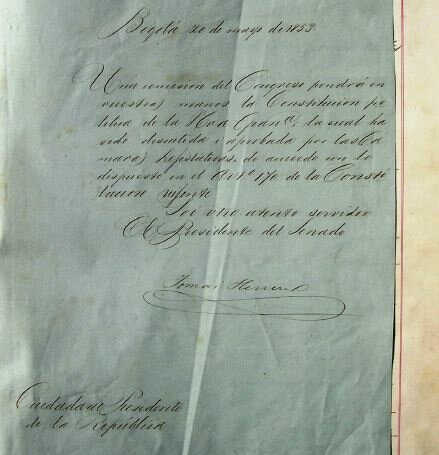 Bogotá 20 de mayo de 1853
Una comision del Congreso pondrá en
vuestras manos la Constitucion po
litica de la Nva Granda, la cual ha
sido discutida i aprobada por las Cá
maras Lejislativas, de acuerdo con lo
dispuesto en el Arto 170 de la Consti
tucion vijente
Soi vtro atento servidor
El Presidente del Senado
Tomas Herrera
Ciudadano Presidente
de la República